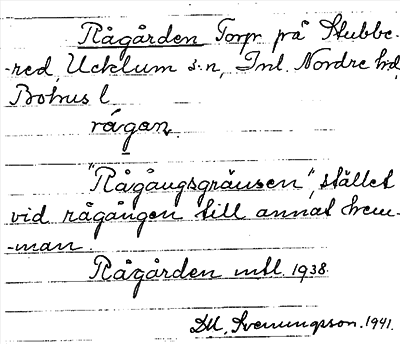 Rågården Torp på Stubbe-
-red, Ucklum s:n, Inl. Nordre hd,
Bohus l.
rågan.
"Rågångsgränsen", stället
vid rågången till annat hem-
-man.
Rågården mtl. 1938.
DU, Svenungsson. 1941.